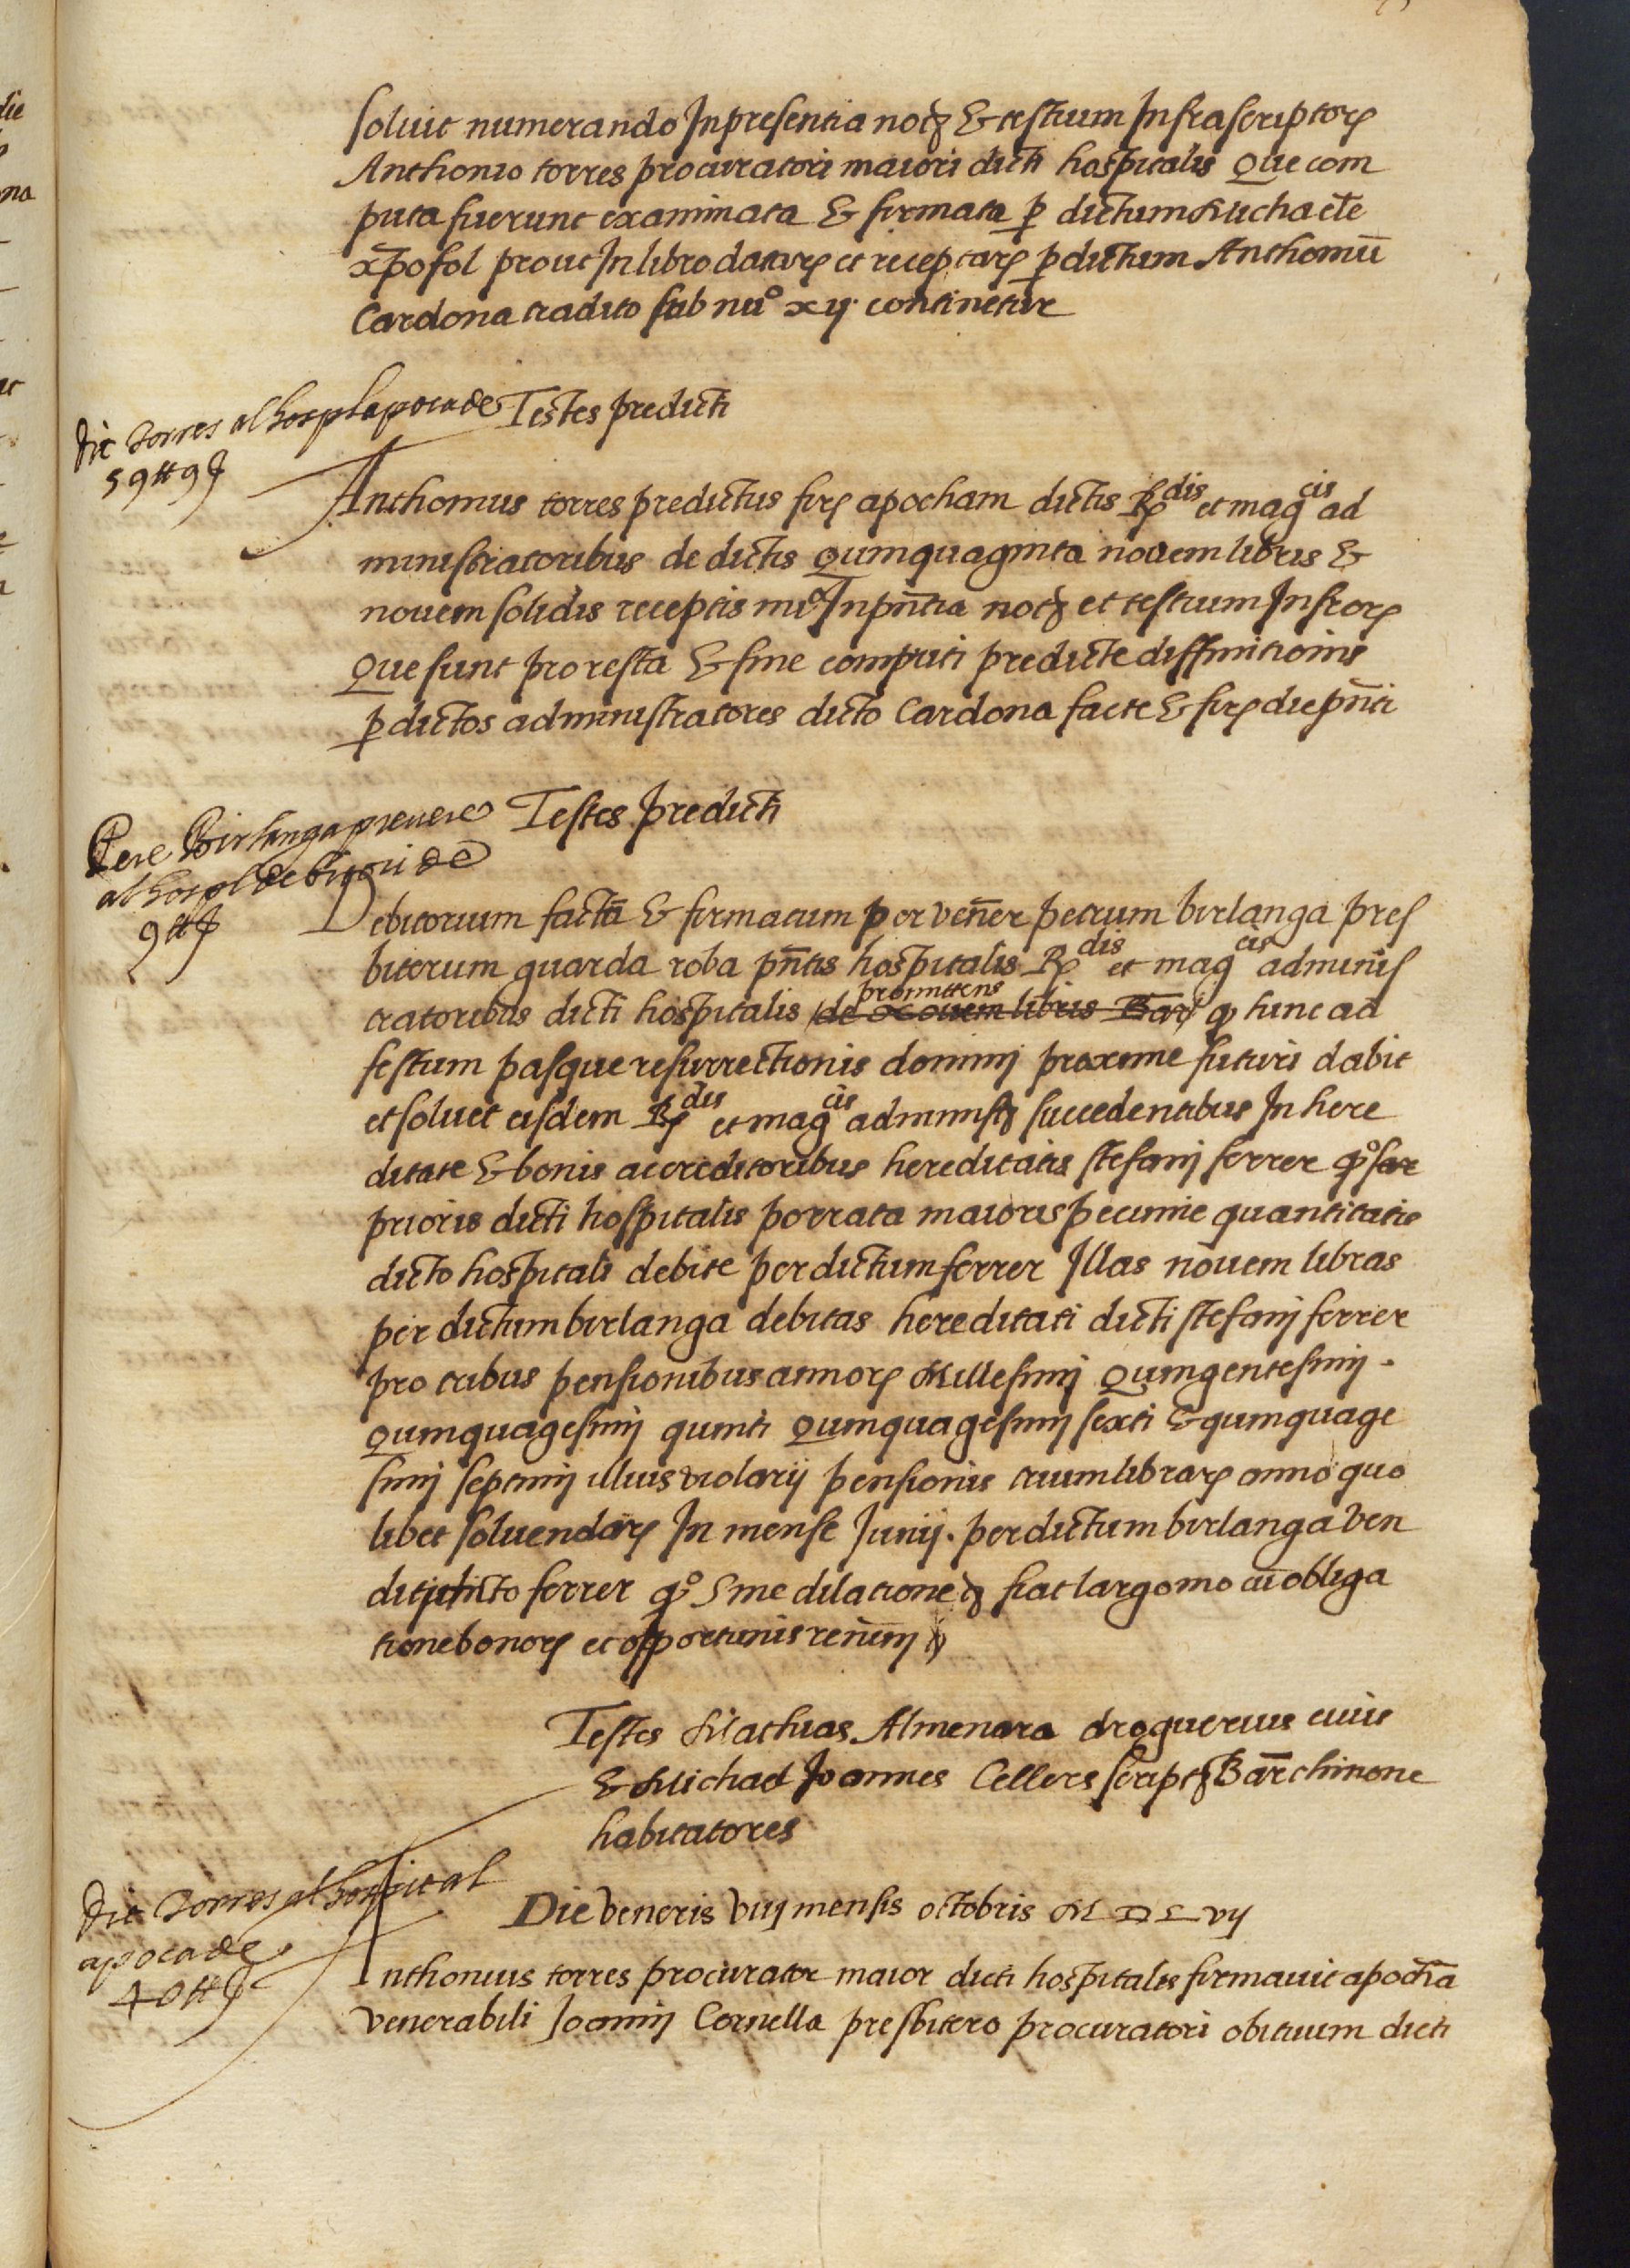 soluit numerando In presentia notꝫ & testium Infrascriptoꝝ
Anthonio torres procuratori maiori dicti hospitalis Que com
puta fuerunt examinata & firmata ꝑ dictum Michaele
xp̄ofol prout In libro dataꝝ et receptaꝝ ꝑ dictum Anthoniū
Cardona tradito sub nu° xij continetur
dit torres al hospl apoca de
59 ℔ 9 ſ
Testes predicti
Anthonius torres predictus firꝫ apocham dictis Rdis et magcis ad
ministratoribus de dictis Quinquaginta nouem libris &
nouem solidis receptis mo In pn̄tia notꝫ et testium Infroꝝ
Que sunt pro resta & fine computi predicte diffinitionis
ꝑ dictos administratores dicto Cardona facte & firꝫ die pn̄ti
Pere Birlanga preuere
al hospl debitori de
9 ℔ ſ
Testes predicti
Debitorium factū & firmatum per vener̄ petrum birlanga pres
biterum guarda roba pn̄tis hospitalis Rdis et magcis adminis
tratoribus dicti hospitalis promittens ꝙ hinc ad
festum pasque resurrectionis dominj proxime futuri dabit
et soluet eisdem Rdis et magcis administꝫ succedentibus In here
ditate & bonis ac creditoribus hereditatis stefanj ferrer q°
prioris dicti hospitalis porrata maioris pecunie quantitatis
dicto hospitali debite per dictum ferrer Illas nouem libras
per dictum birlanga debitas hereditati dicti stefanj ferrer
pro tribus pensionibus annoꝝ Millesimj Quingentesimj
Quinquagesimj quinti Quinquagesimj sexti & quinquage
simj septimj illius violarij pensionis trium libraꝝ anno quo
libet soluendaꝝ In mense Junij. per dictum birlanga ven
diti dicto ferrer q° Sine dilatione ꝫ fiat largo mo cū obliga
tione bonoꝝ et opportunis renun̄j
Testes Mathias Almenara droguerius ciuis
& Michael Joannes Cellers scriptꝫ Bar̄chinone
habitatores
dit torres al hospital
apoca de
40 ℔ ſ
Die Veneris viij mensis octobris M D L vij
Anthonius torres procurator maior dicti hospitalis firmauit apochā
venerabili Joannj Cornella presbitero procuratori obituum dicti